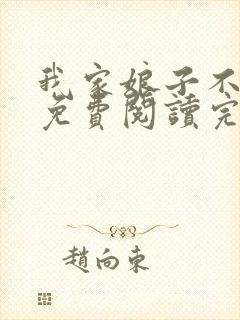 我家娘子不
免費閱讀完
趙向東